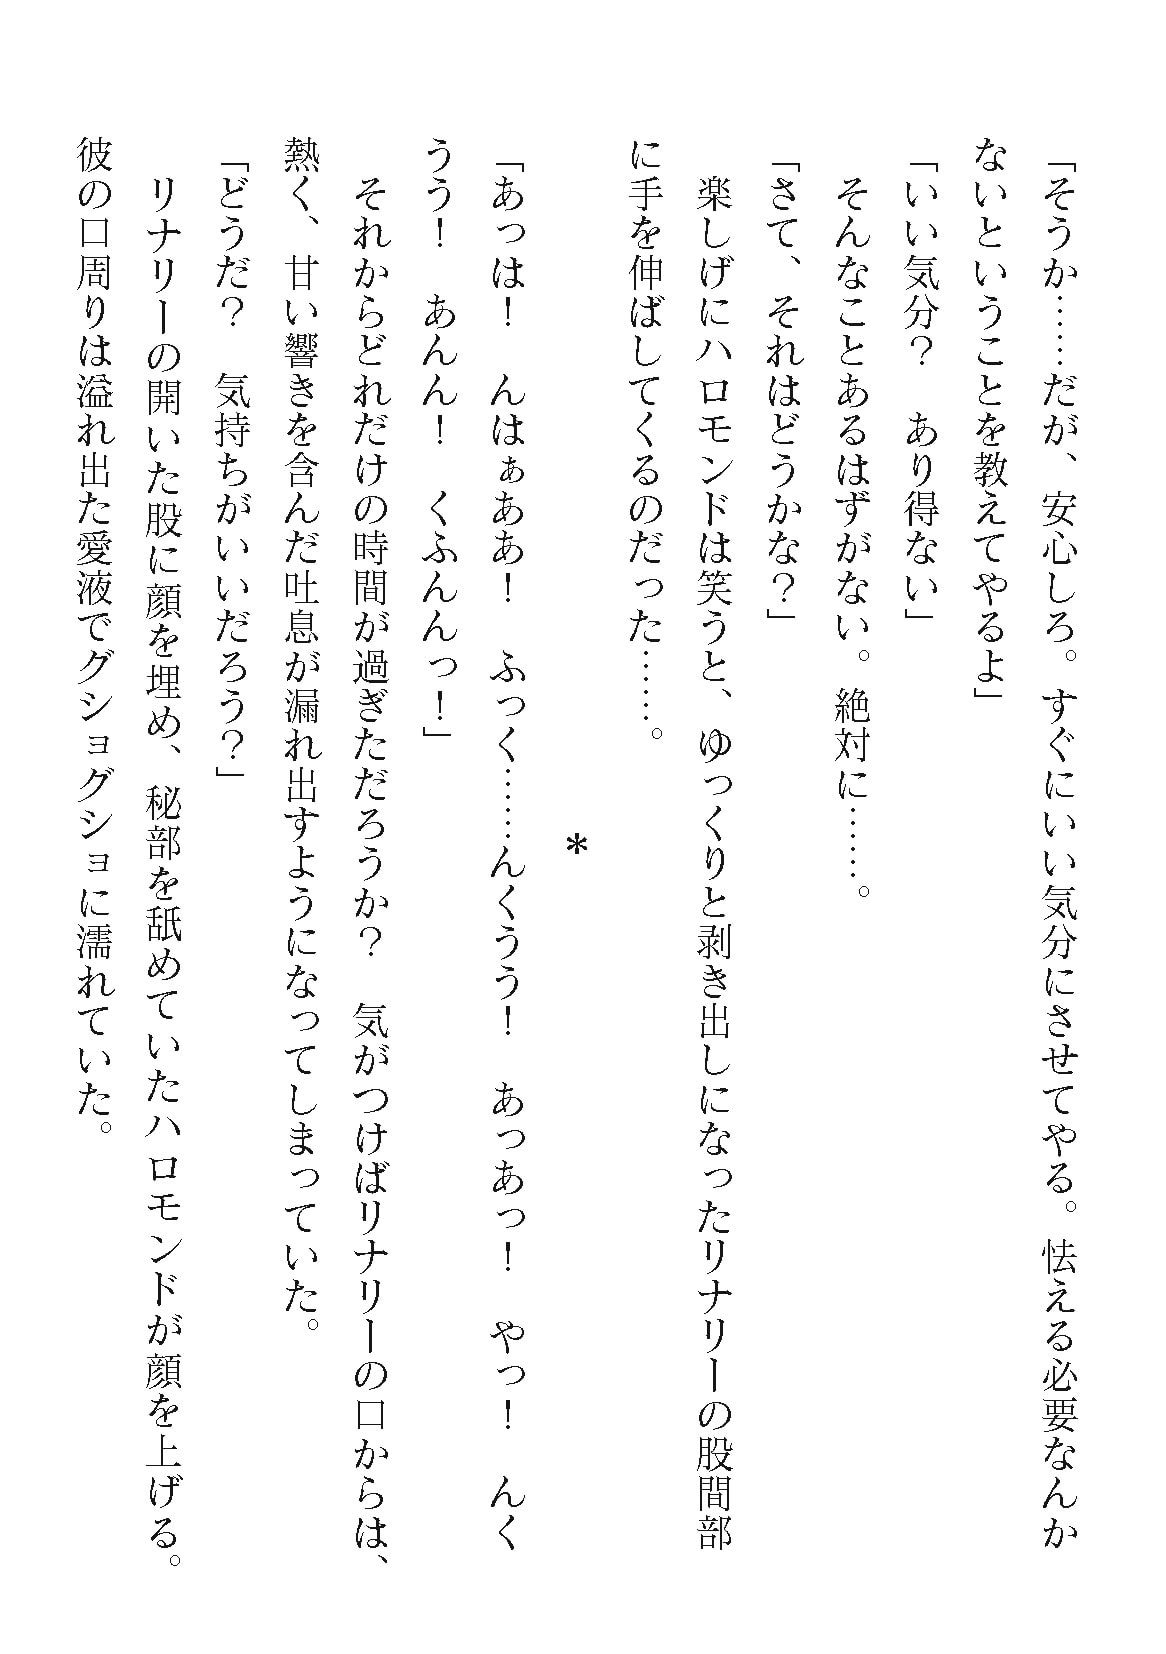 「そうか……だが、安心しろ。すぐにいい気分にさせてやる。怯える必要なんか
ないということを教えてやるよ」
「いい気分？　あり得ない」
　そんなことあるはずがない。絶対に……。
「さて、それはどうかな？」
　楽しげにハロモンドは笑うと、ゆっくりと剥き出しになったリナリーの股間部
に手を伸ばしてくるのだった……。
＊
「あっは！　んはぁああ！　ふっく……んくうう！　あっあっ！　やっ！　んく
うう！　あんん！　くふんんっ！」
　それからどれだけの時間が過ぎただろうか？　気がつけばリナリーの口からは、
熱く、甘い響きを含んだ吐息が漏れ出すようになってしまっていた。
「どうだ？　気持ちがいいだろう？」
　リナリーの開いた股に顔を埋め、秘部を舐めていたハロモンドが顔を上げる。
彼の口周りは溢れ出た愛液でグショグショに濡れていた。